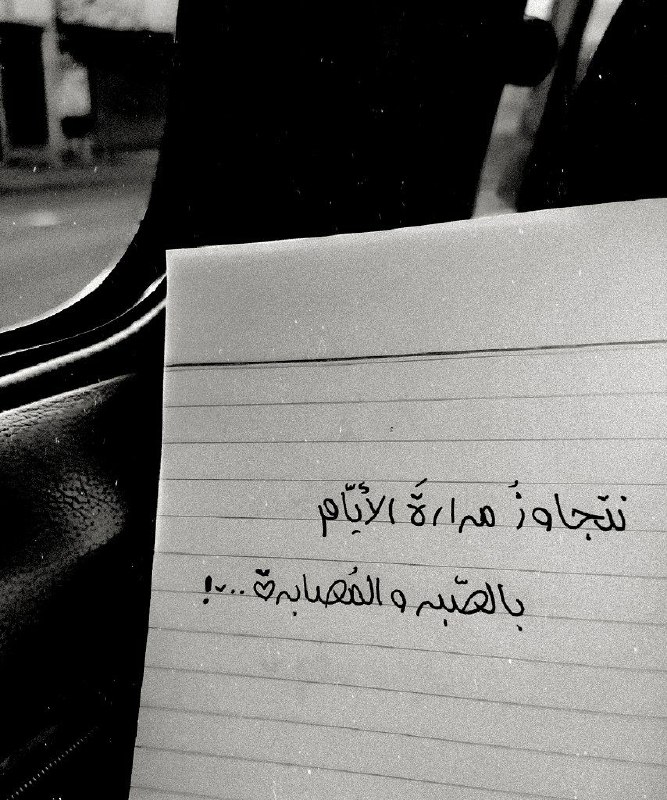 نتجاوزُ مرارةَ الأيّام
بالصّبر والمُصابرة...!